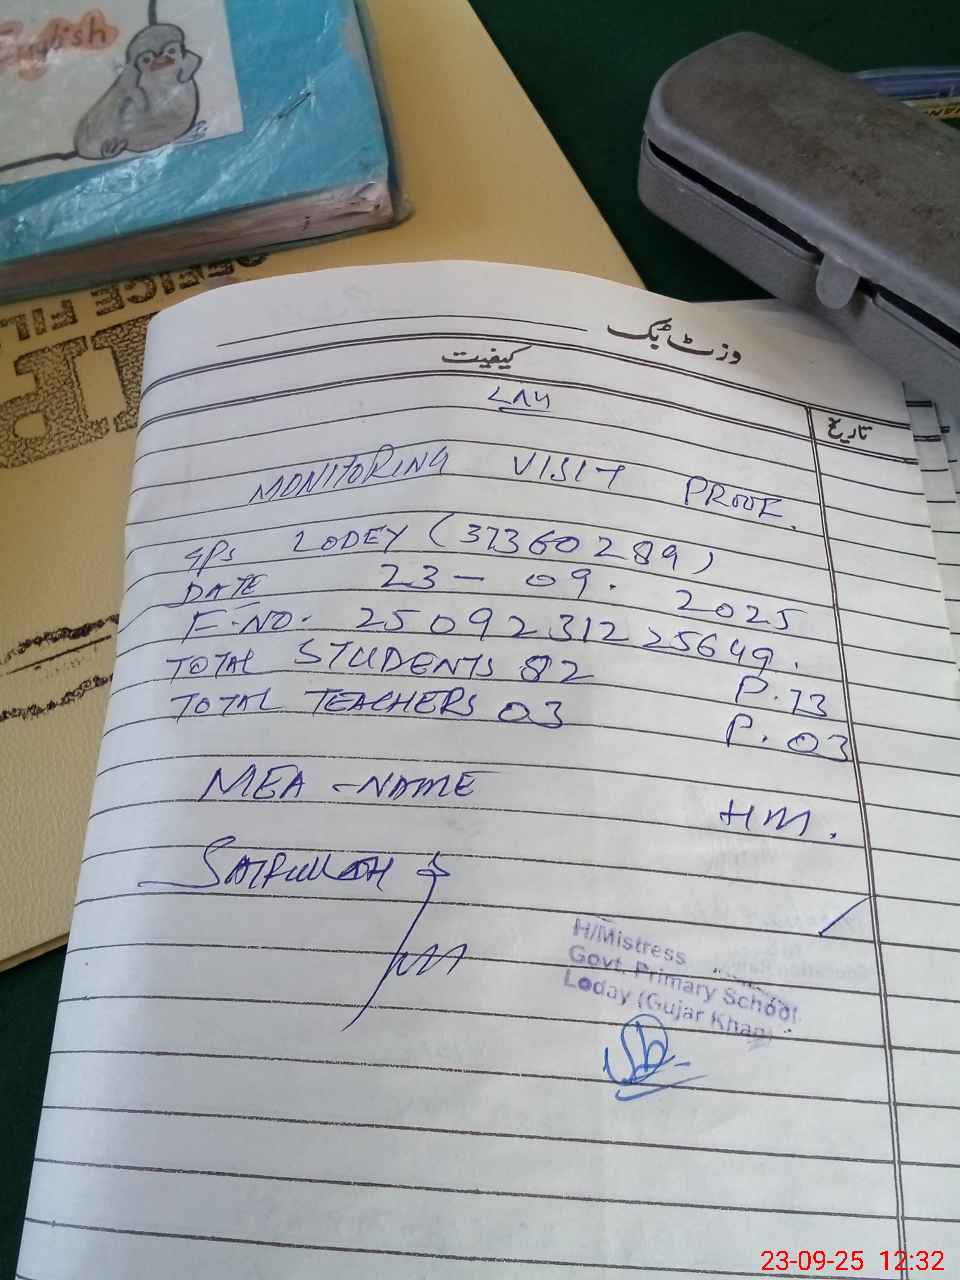 English
OFFICE FIL
وزٹ بک
کیفیت
تاریخ
MONITORING VISIT PROOF.
GPS LODEY (37360289)
DATE 23-09.2025
F.NO. 2509231225649.
TOTAL STUDENTS 82 P.73
TOTAL TEACHERS 03 P.03
MEA-NAME HM.
SAIFULLAH
H/Mistress
Govt. Primary School
Loday (Gujar Khan)
23-09-25 12:32